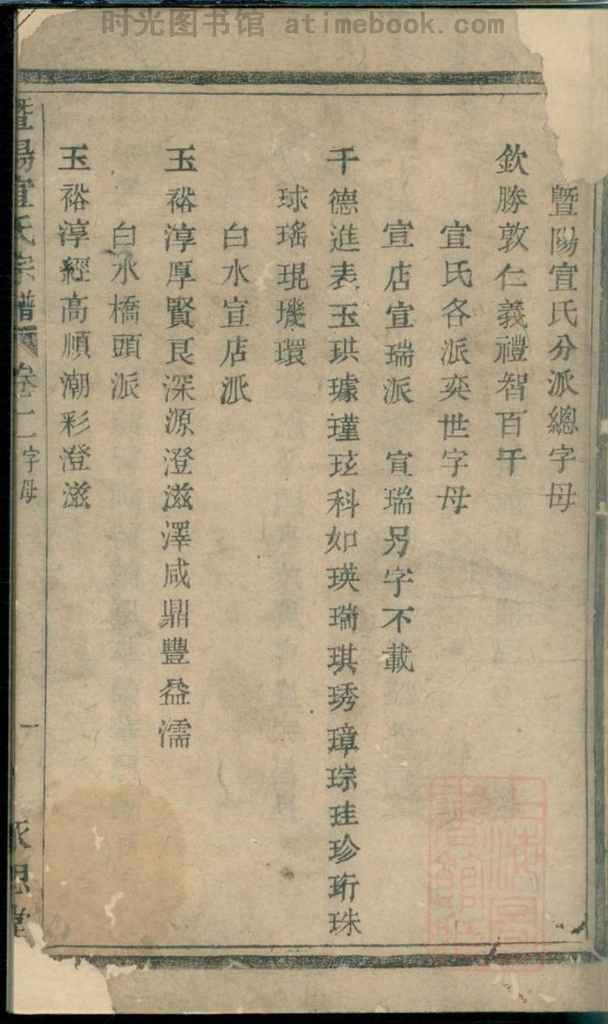 时光图书馆 atimebook.com
暨陽宣氏分派總字母
欽勝敦仁義禮智百千
宣氏各派奕世字母
宣店宣瑞派 宣瑞另字不載
千德進表玉珙璩瑾玹科如瑛瑞琪琇璋琮珪珍珩珠
球瑤琨璣環
白水宣店派
玉裕淳厚賢良深源澄滋澤咸鼎豐益濡
白水橋頭派
玉裕淳經高順潮彩澄滋
暨陽宣氏宗譜 卷二 字母
一
永思堂